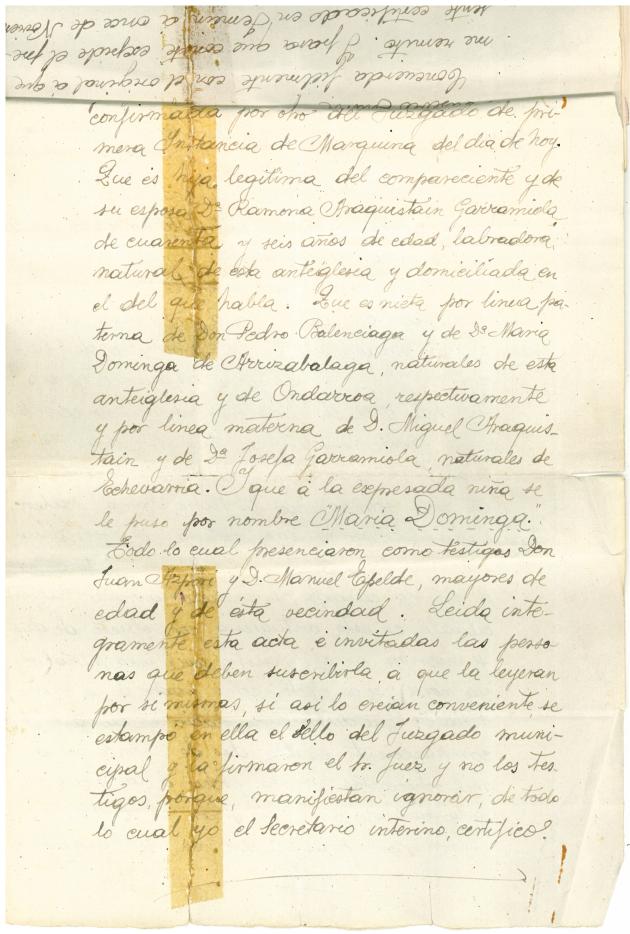 Concuerda fielmente con el original á que
me remito. Y para que conste expido el pre-
sente certificado en Jemein a once de Noviem
confirmada por otro del Juzgado de pri-
mera Instancia de Marquina del dia de hoy.
Que es hija legitima del compareciente y de
su esposa Dª Ramona Araquistain Garramiola
de cuarenta y seis años de edad, labradora,
natural de esta anteiglesia y domiciliada en
el del que habla. Que es nieta por linea pa-
terna de Don Pedro Balenciaga y de Dª Maria
Dominga de Arrizabalaga, naturales de esta
anteiglesia y de Ondarroa, respectivamente
y por linea materna de D. Miguel Araquis-
tain y de Dª Josefa Garramiola, naturales de
Echevarria. Y que á la expresada niña se
le puso por nombre "Maria Dominga".
Todo lo cual presenciaron como testigos Don
Juan y D. Manuel Egelde, mayores de
edad y de ésta vecindad. Leida inte-
gramente esta acta é invitadas las perso-
nas que deben suscribirla, á que la leyeran
por si mismas, si asi lo creian conveniente, se
estampó en ella el sello del Juzgado muni-
cipal y la firmaron el Sr. Juez y no los tes-
tigos, porque, manifiestan ignorar, de todo
lo cual yo el Secretario interino, certifico.